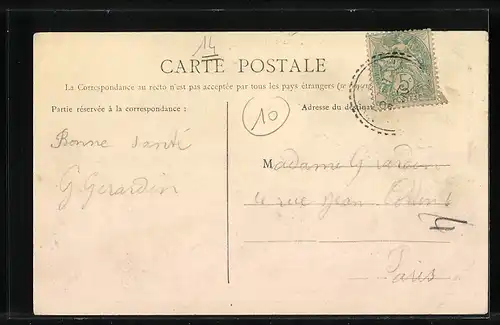 14
CARTE POSTALE
La Correspondance au recto n'est pas acceptée par tous les pays étrangers
Partie réservée à la correspondance :
Adresse du
10
Bonne santé
G Gerardin
Madame Girardin
rue Jean
4
Paris
5